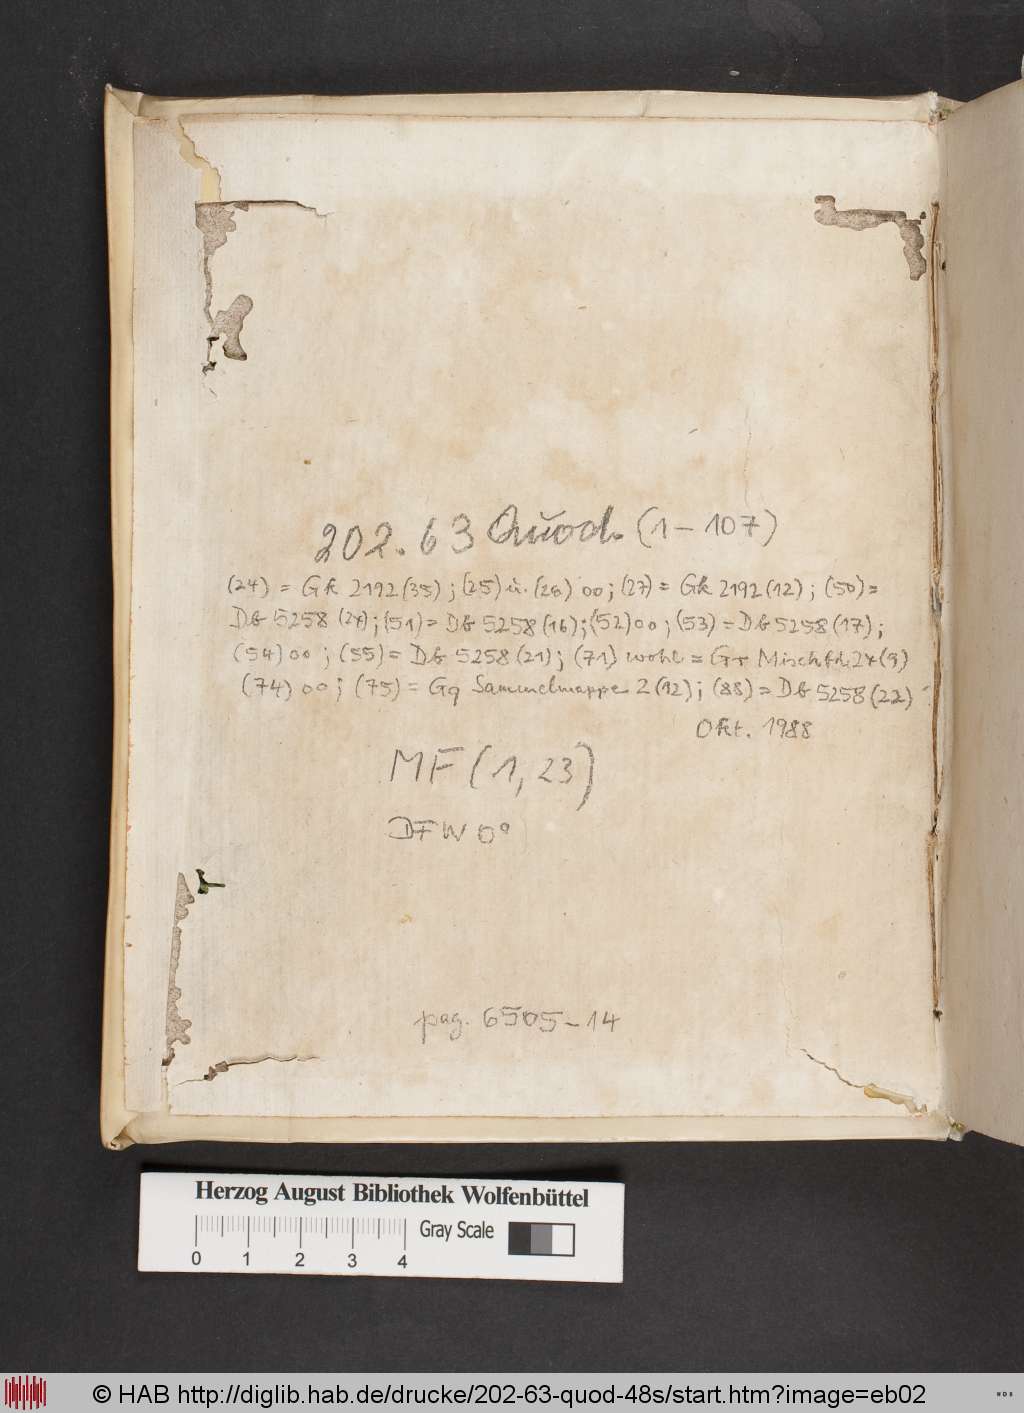 202.63 Quod. (1-107)
(24) = Gk 2192 (35); (25) u. (26) oo; (27) = Gk 2192 (12); (50) =
Db 5258 (24); (51) = Db 5258 (16); (52) oo; (53) = Db 5258 (17);
(54) oo; (55) = Db 5258 (21); (71) wohl = Gr Mischbd. 24 (9)
(74) oo; (75) = Gq Sammelmappe 2 (12); (88) = Db 5258 (22)
Okt. 1988
MF (1, 23)
DFW 0°
pag. 6505-14
Herzog August Bibliothek Wolfenbüttel
Gray Scale
0 1 2 3 4
© HAB http://diglib.hab.de/drucke/202-63-quod-48s/start.htm?image=eb02
WDB